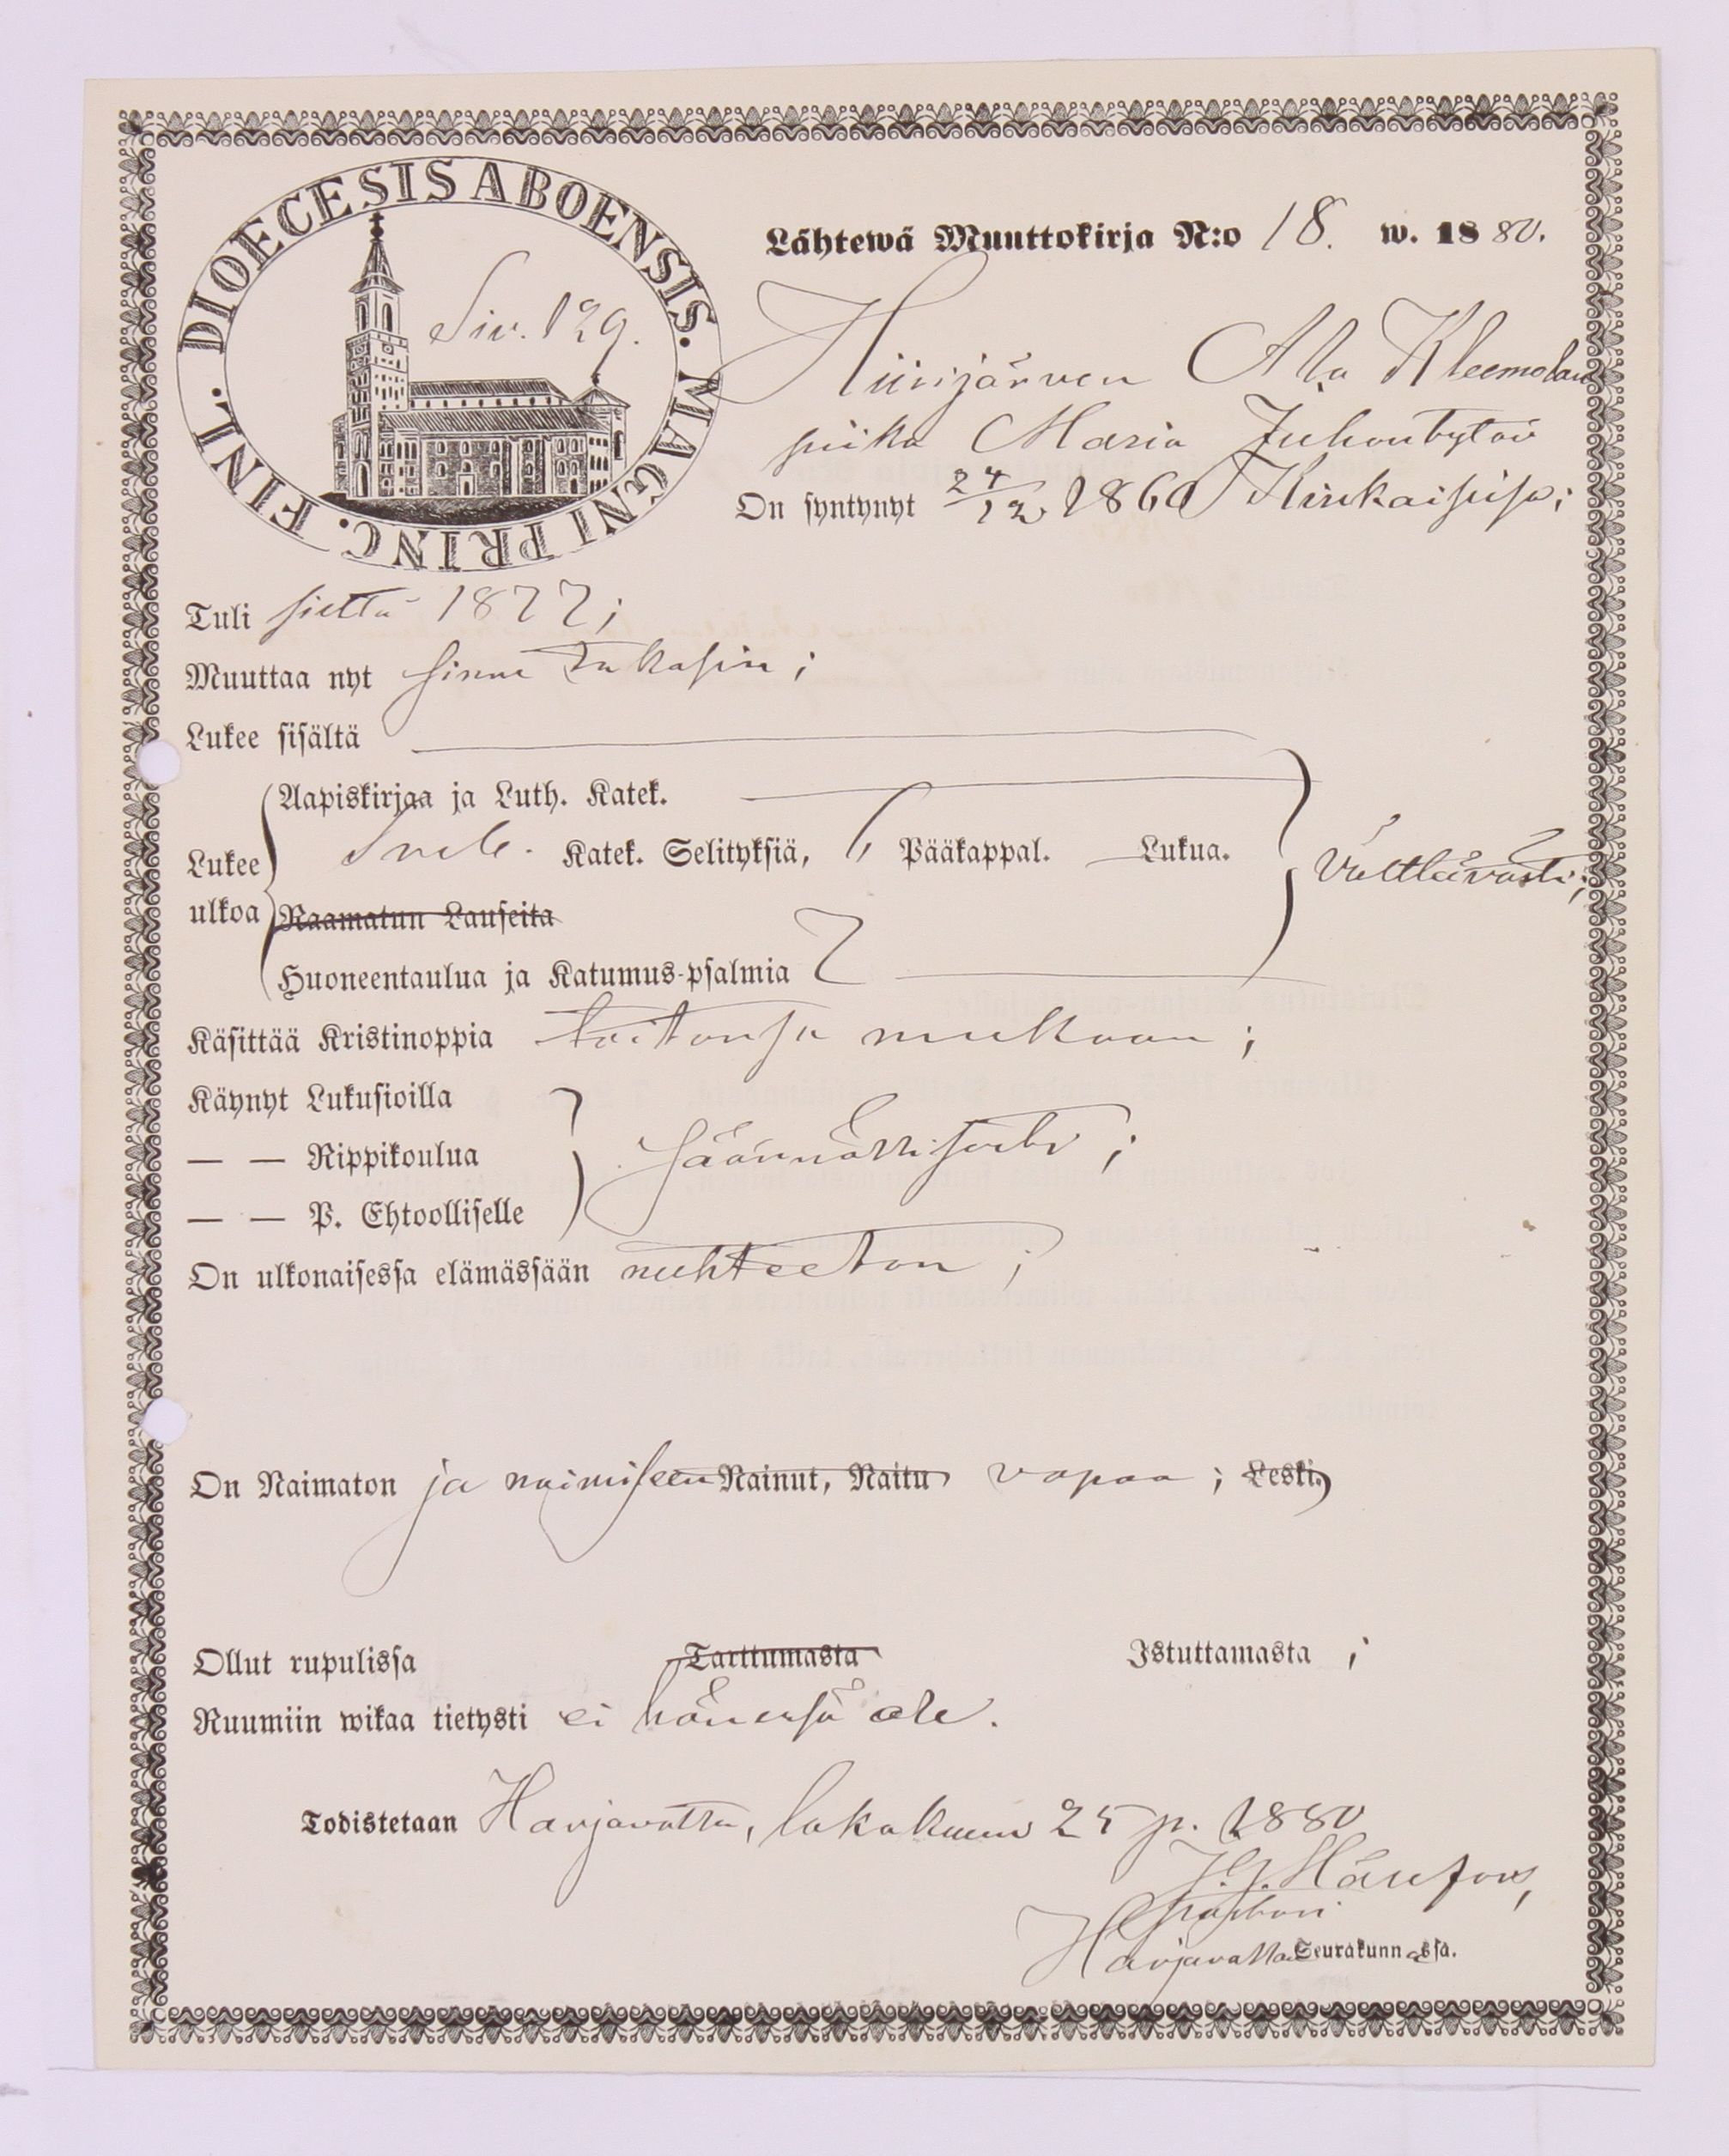 DIOECESIS ABOENSIS. MAGNI PRINC. FINL.
Siv. 129.
Lähtewä Muuttokirja N:o 18. w. 1880.
Hiirijärven Ala Kleemolan
piika Maria Juhontytär
On syntynyt 24/12 1860 Kiukaisissa;
Tuli sieltä 1877;
Muuttaa nyt sinne takasin;
Lukee sisältä
Aapiskirjaa ja Luth. Katek.
Lukee ulkoa
Katek. Selityksiä, Pääkappal. Lukua.
Välttävästi;
Raamatun Lauseita
Huoneentaulua ja Katumus-psalmia 7
Käsittää Kristinoppia taitonsa mukaan;
Käynyt Lukusioilla
— — Rippikoulua
säännöllisesti;
— — P. Ehtoolliselle
On ulkonaisessa elämässään nuhteeton;
On Naimaton ja naimiseen Nainut, Naitu vapaa; Leski,
Ollut rupulissa Tarttumasta Istuttamasta;
Ruumiin wikaa tietysti ei hänessä ole.
Todistetaan Harjavalta, lokakuun 25 p. 1880
Pastori
Harjavallan Seurakunnassa.